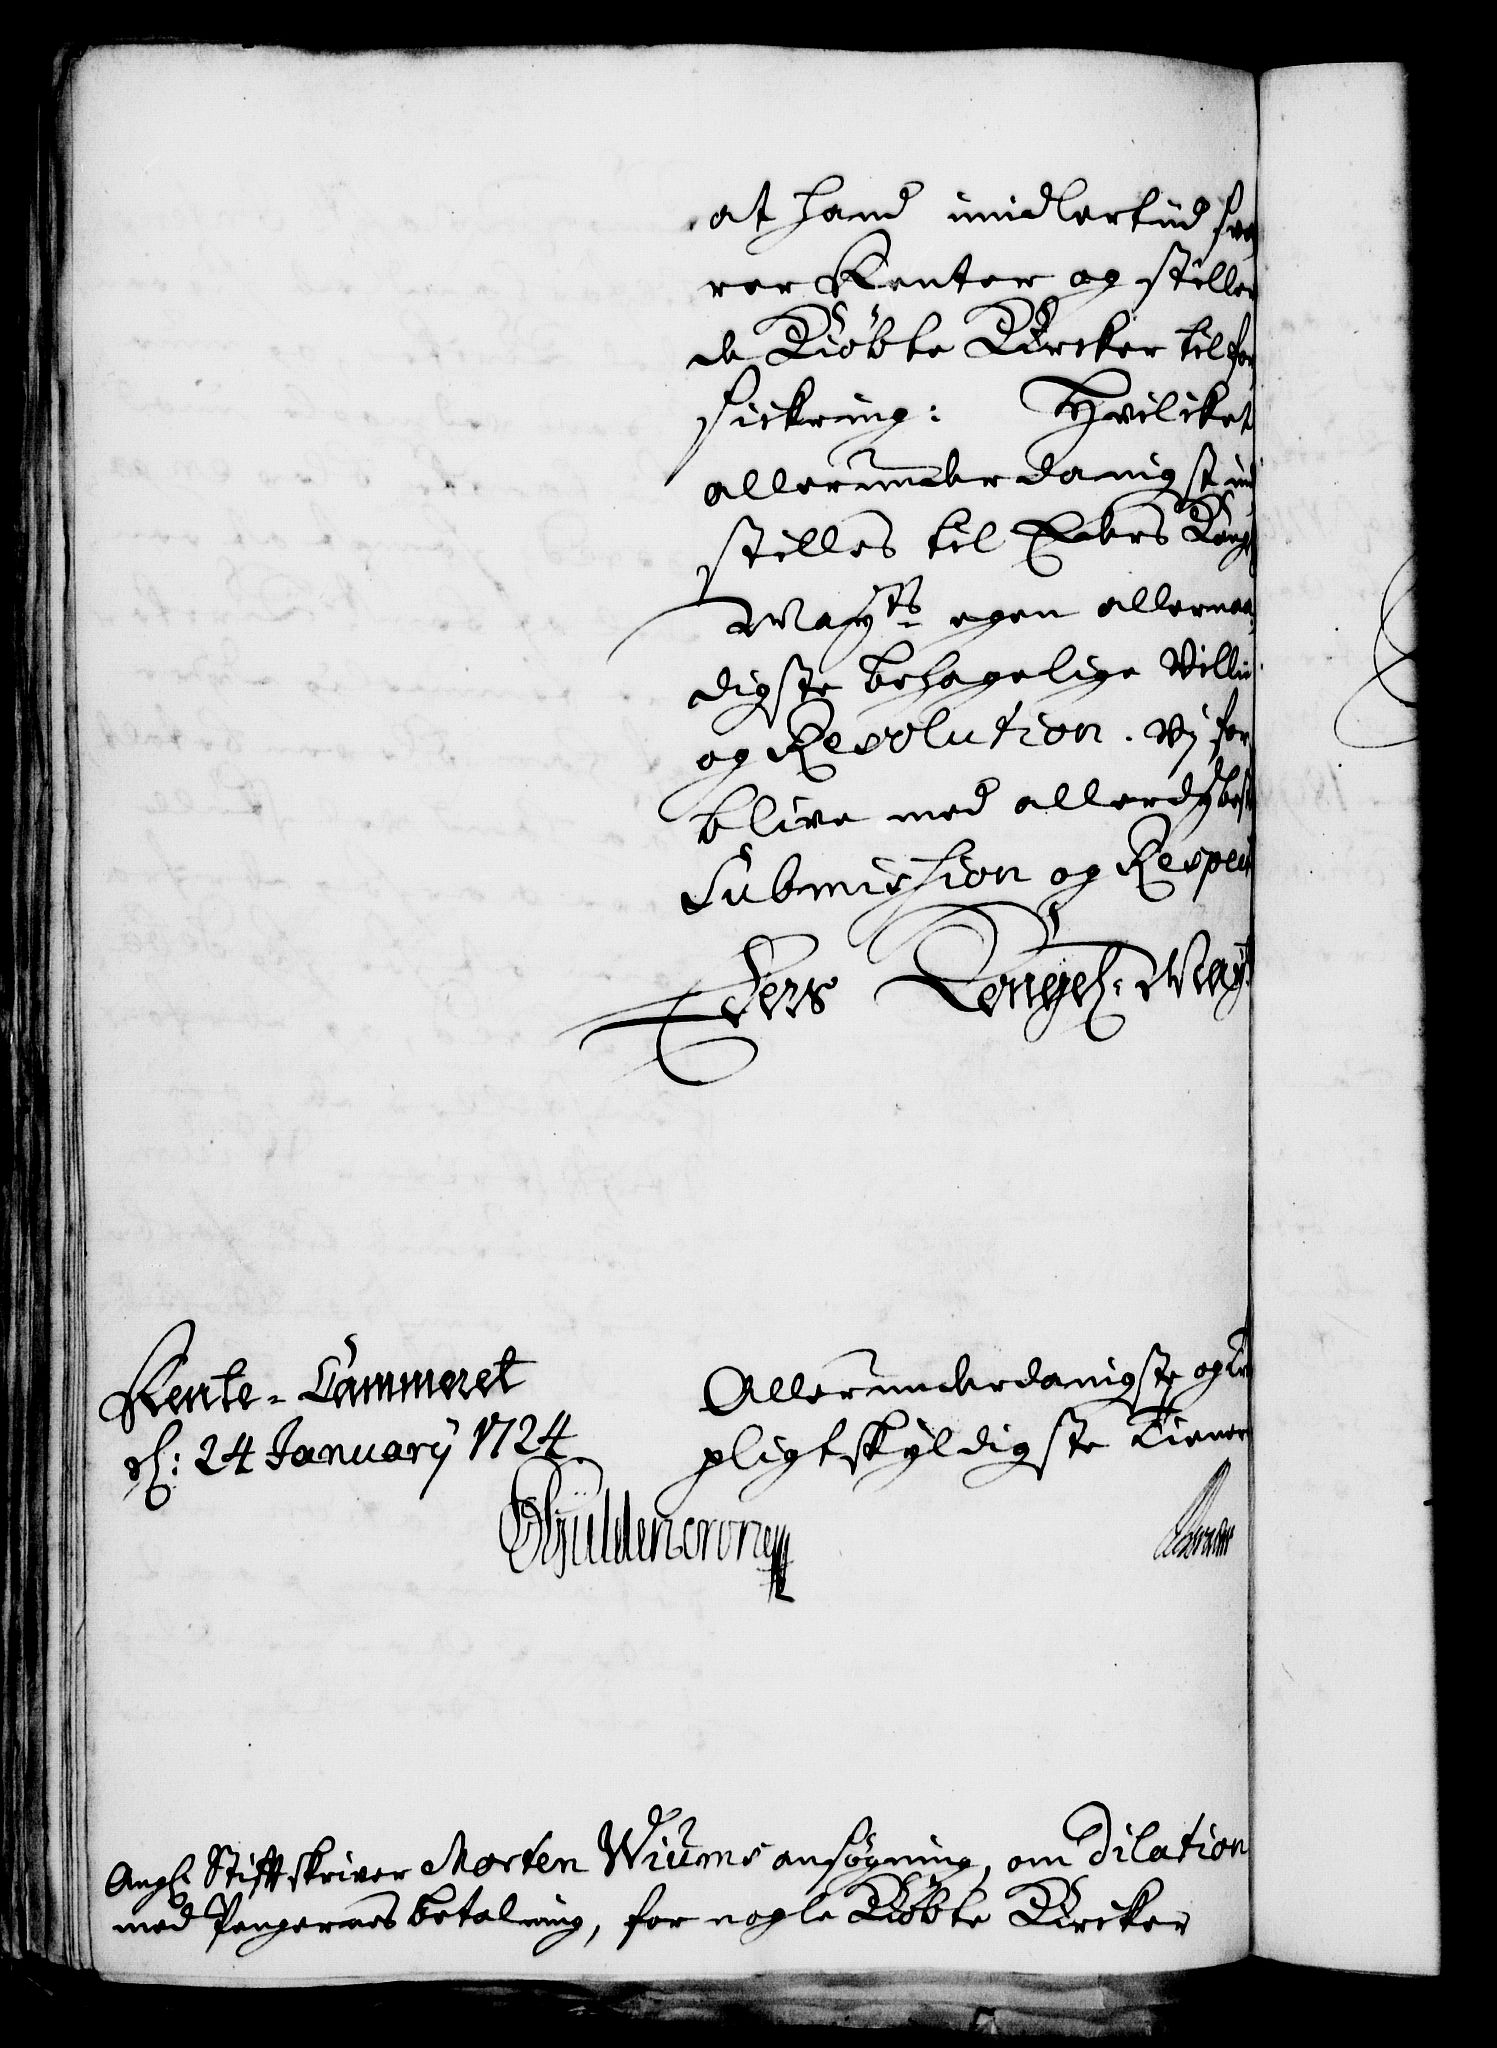 at hand imidlertiid sva
rer Renter og stiller
de Kiøbte Kircker til for
sickring: Hvilcket
allerunderdanigst ind
stilles til Eders Kongl
Mayts egen allernaa
digste behagelige Villie
og Resolution. Vj for
blive med allerdybeste
Submission og Respect
Eders Kongel: Mayts
Rente-Cammeret
d: 24 January 1724
Allerunderdanigste og
pligtskyldigste Tienere
Gyldencrone
Angl: Stiftskriver Morten Wiums ansøgning, om Dilation
med Pengernes betalning, for nogle Kiøbte Kircker